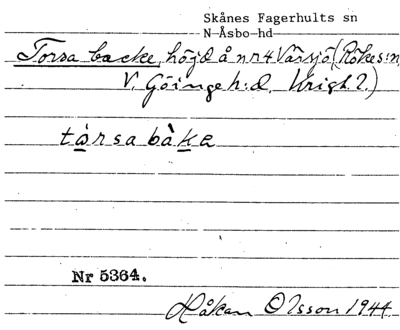 Skånes Fagerhults sn
N Åsbo hd
Torsa backe, höjd å nr 4 Vårsjö (Rökes:n,
V. Göinge h:d, Krist. l.)
tårsa bàke
Nr 5364.
Håkan Olsson 1944